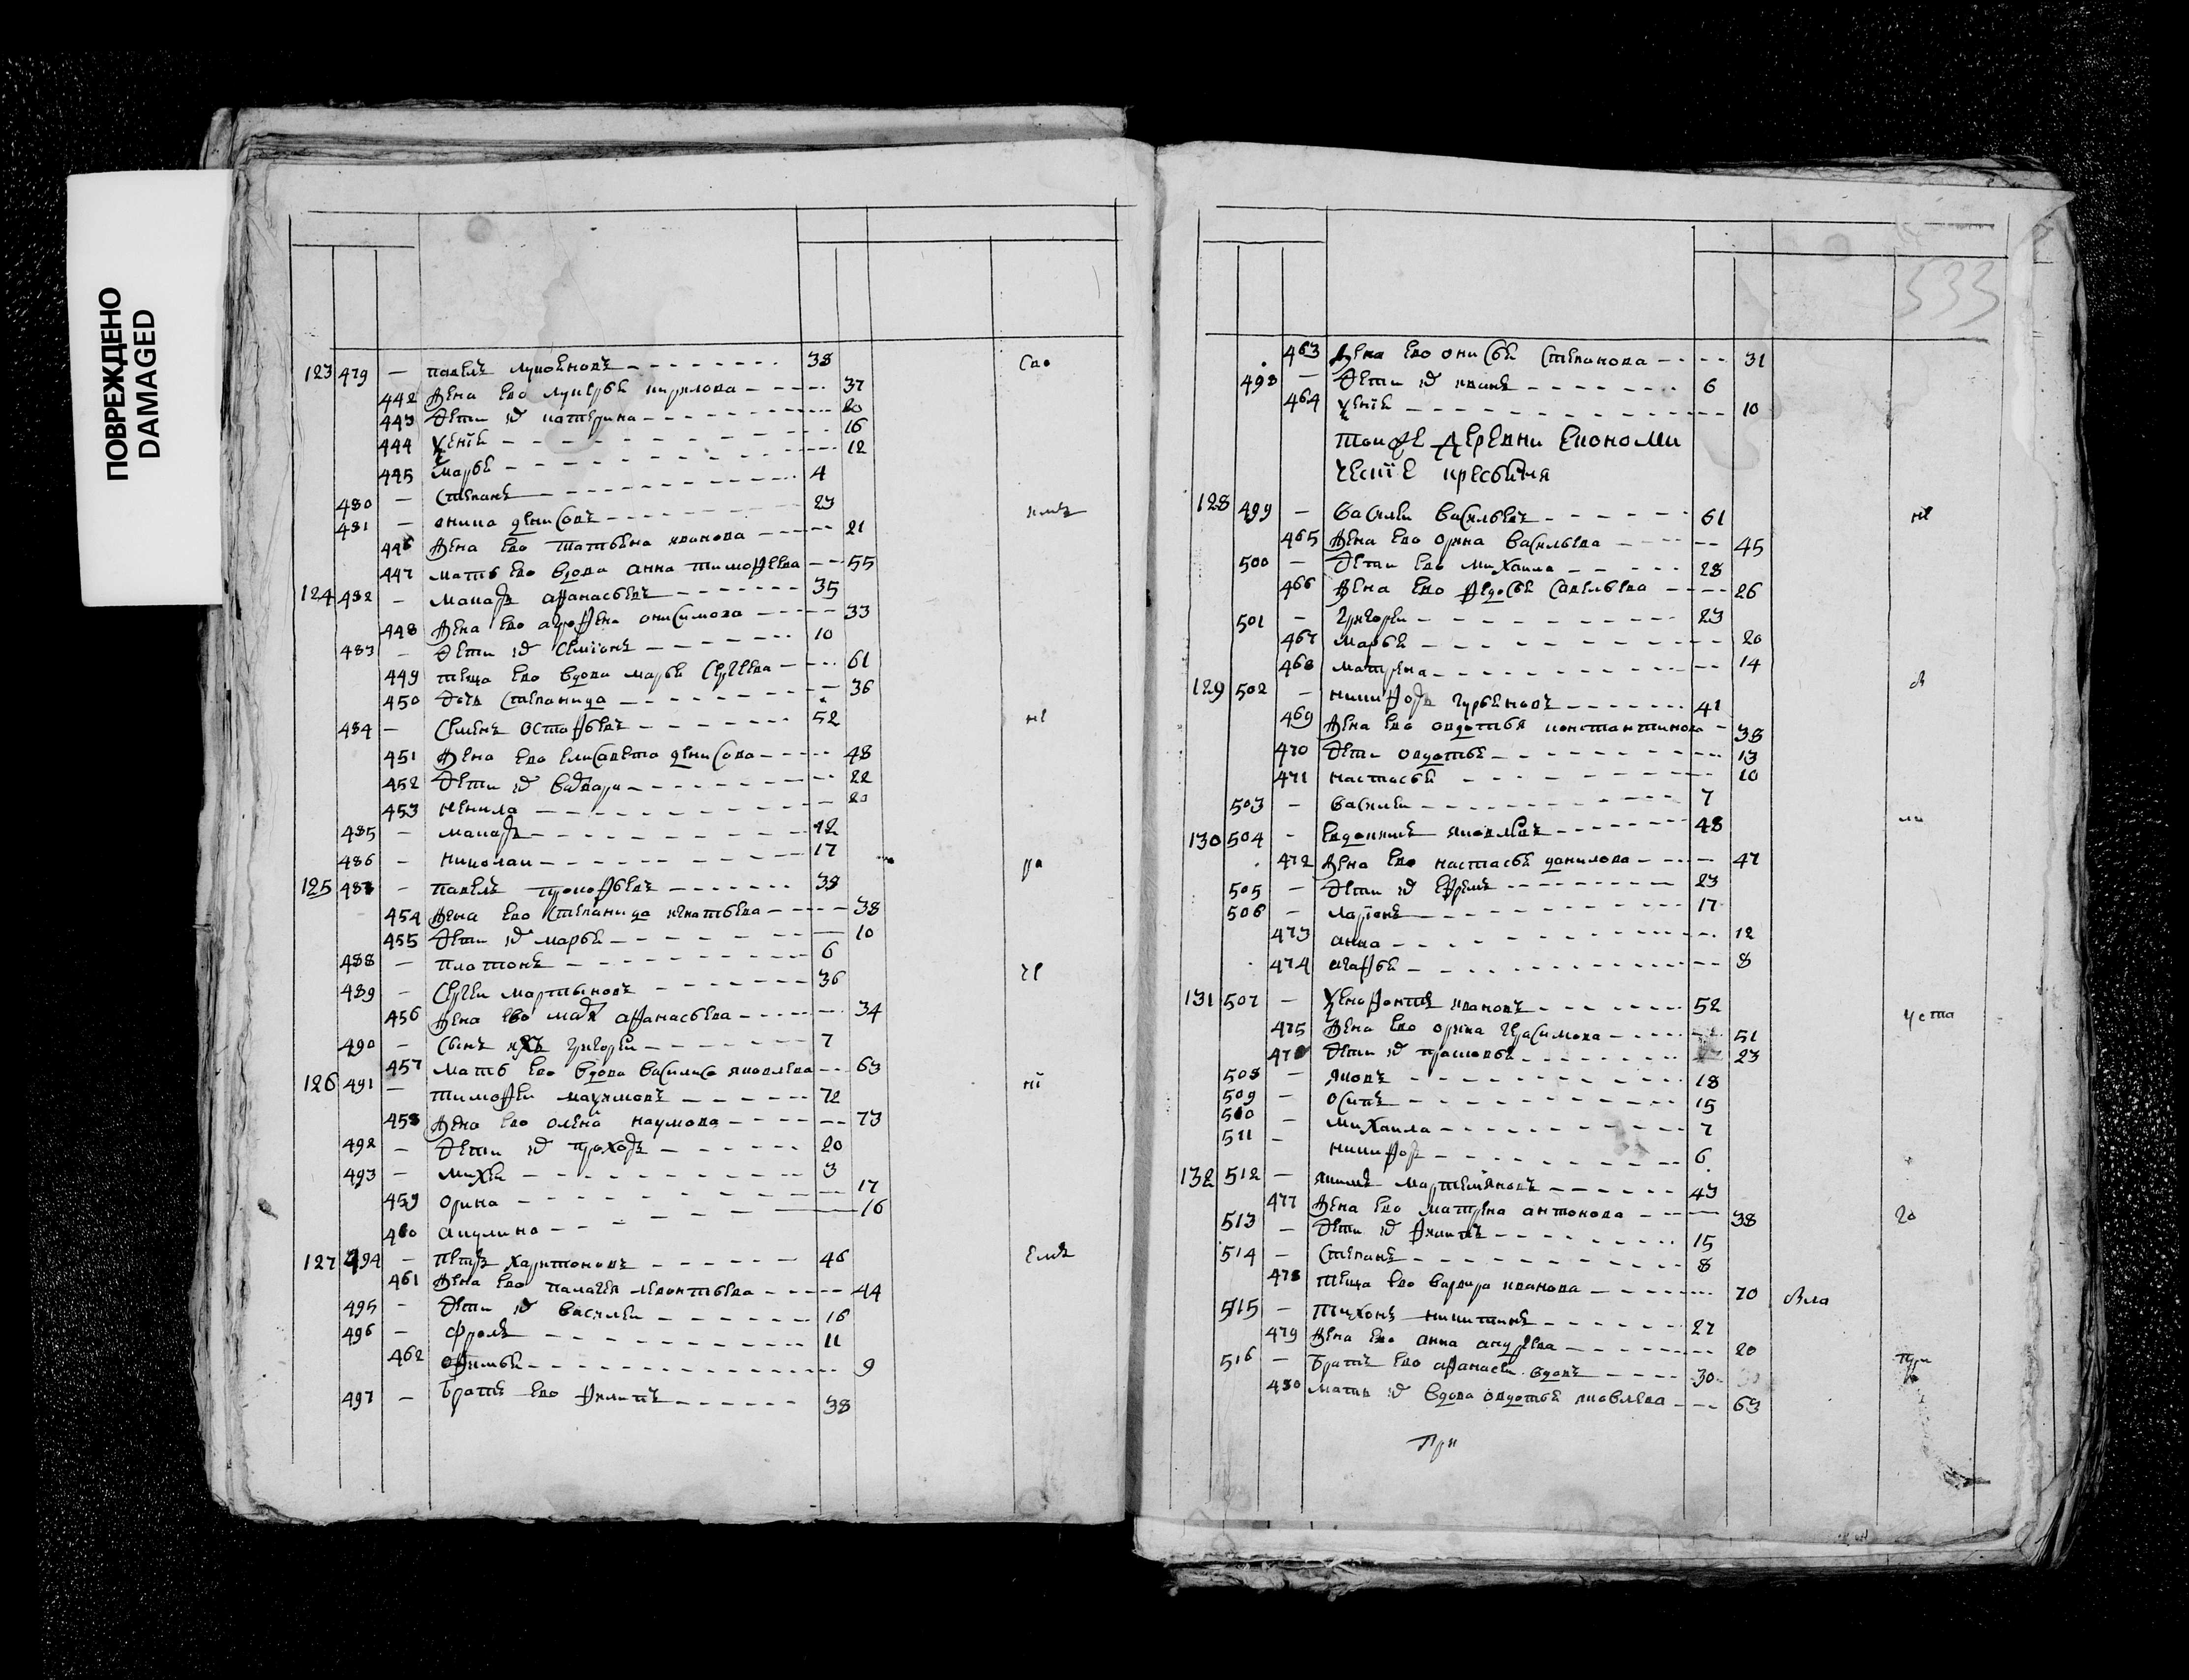 ПОВРЕЖДЕНО
DAMAGED
123 479 — павелъ лукоѧновъ 38 Сво
442 жена ево лукерья кирилова 37
443 дети их катерина 20
444 ѯения 16
445 марья 12
480 — степанъ 4
481 — аника денисовъ 23
446 жена ево татьяна иванова 21
447 мать ево вдова анна тимофеева 55
124 482 — макаръ афанасьевъ 35
448 жена ево аграфена онисимова 33
483 — дети их семионъ 10
449 теща ево вдова марья сергеева 61
450 дочь степанида 36
484 — семенъ остафьевъ 52 не
451 жена ево елисавета денисова 48
452 дети их варвара 22
453 ненила 20
485 — макаръ 12
486 — николаи 17 ра
125 487 — павелъ прокофьевъ 38
454 жена ево степанида игнатьева 38
455 дети их марья 10
488 — платонъ 6
489 — сергеи мартыновъ 36 че
456 жена ево марья афанасьева 34
490 — сынъ ихъ григореи 7
457 мать ево вдова василиса яковлева 63
126 491 — тимофеи максимовъ 72 ни
458 жена ево олена наумова 73
492 — дети их прохоръ 20
493 — михеи 3
459 орина 17
460 акулина 16
127 494 — петръ харитоновъ 46 емъ
461 жена ево палагея леонтьева 44
495 — дети их василеи 16
496 — фролъ 11
462 офимья 9
497 — братъ ево филипъ 38
533
463 жена ево онисья степанова 31
498 — дети их иванъ 6
464 ѯения 10
тои же деревни економи
ческие кресьтяня
128 499 — василеи васильевъ 61 не
465 жена ево орина васильева 45
500 — дети ево михаила 28
466 жена ево федосья савельева 26
501 — григореи 23
467 марья 20
468 матрена 14
129 502 — никифоръ гурьяновъ 41
469 жена ево овдотья константинова 38
470 дети овдотья 13
471 настасья 10
503 — василеи 7
130 504 — евдокимъ яковлевъ 48
472 жена ево настасья данилова 47
505 — дети их ефремъ 23
506 — ларионъ 17
473 анна 12
474 агафья 8
131 507 — ѯенофонтъ ивановъ 52 чста
475 жена ево орина герасимова 51
476 дети их прасковья 23
508 — яковъ 18
509 — осипъ 15
510 — михаила 7
511 — никифоръ 6
132 512 — якимъ мартемяновъ 43
477 жена ево матрена антонова 38 го
513 — дети их филипъ 15
514 — степанъ 8
478 теща ево варвара иванова 70
515 — тихонъ никитинъ 27
479 жена ево анна андреева 20
516 — братъ ево афанасеи вдовъ 30 При
480 мать их вдова овдотья яковлева 63
При